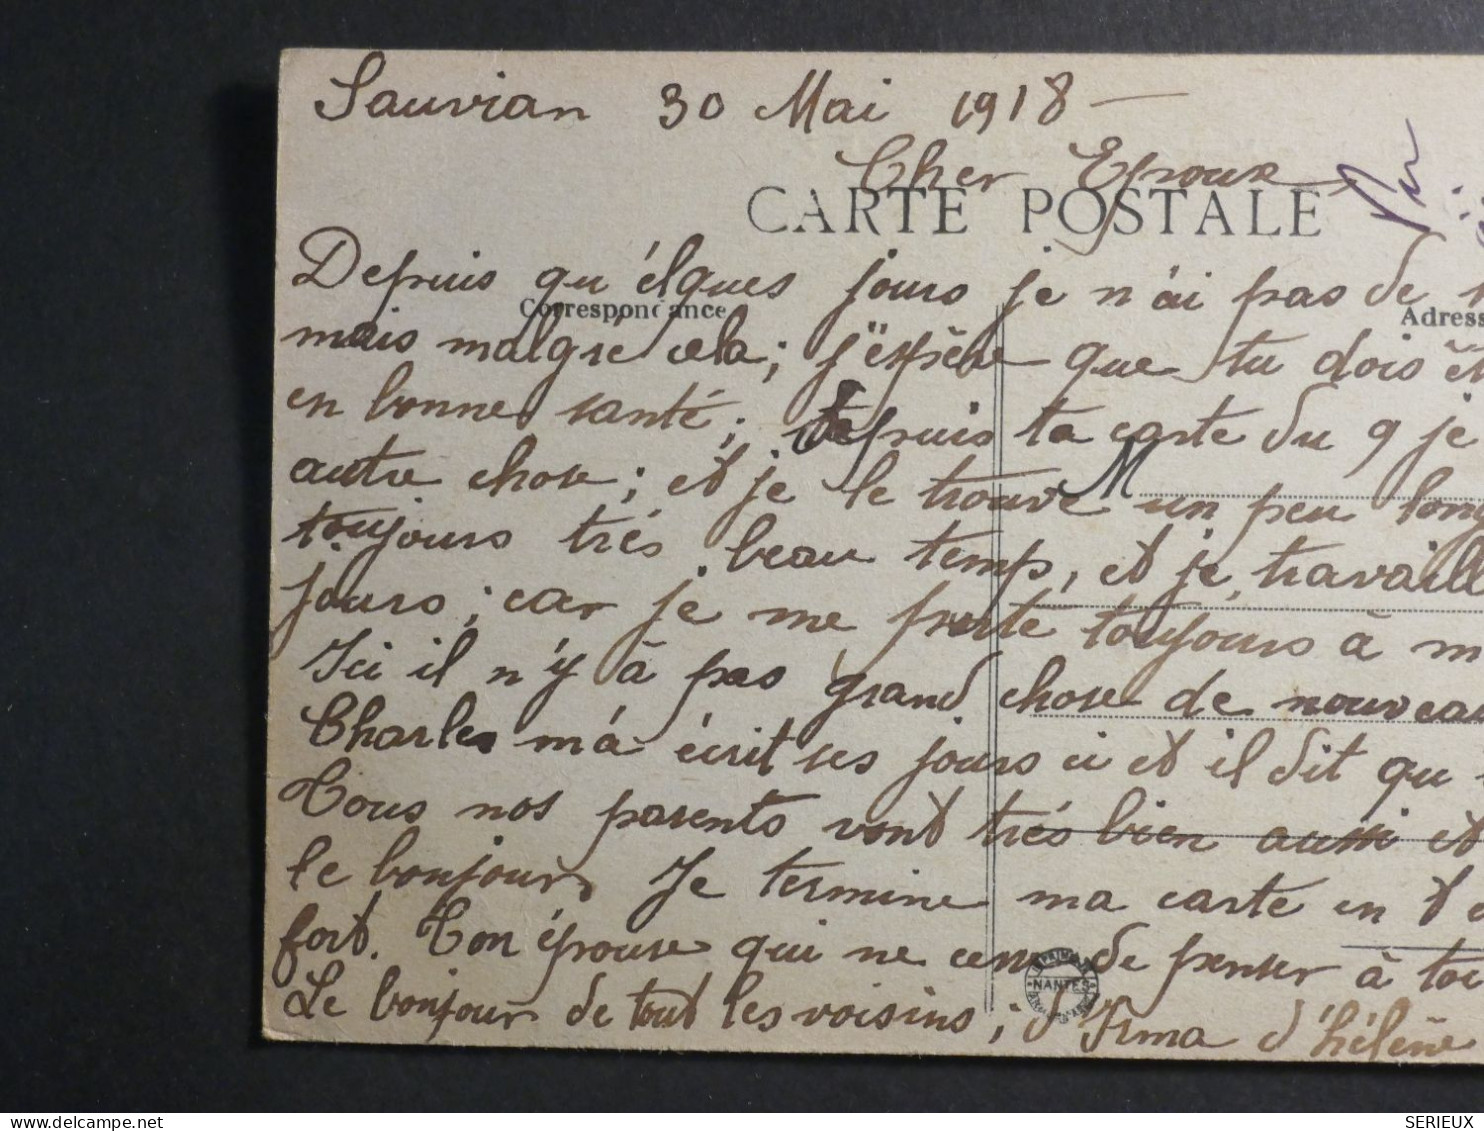 Sauvian 30 Mai 1918 —
Cher Epoux
CARTE POSTALE
Depuis qu'élques jours je n'ai pas de
Correspondance
Adress
mais malgré cela; j'éspère que tu dois
en bonne santé; depuis ta carte du 9 je
autre chose; et je le trouve un peu long
M
toujours très beau temps, et je travaill
jours; car je me porte toujours à m
Ici il n'y à pas grand chose de nouveau
Charles m'à écrit ses jours ci et il dit qu
Tous nos parents vont très bien aussi et
le bonjour, Je termine ma carte en t
fort. Ton épouse qui ne cesse de penser à toi
NANTES
Le bonjour de tout les voisins; d'Irma d'hélène
SERIEUX